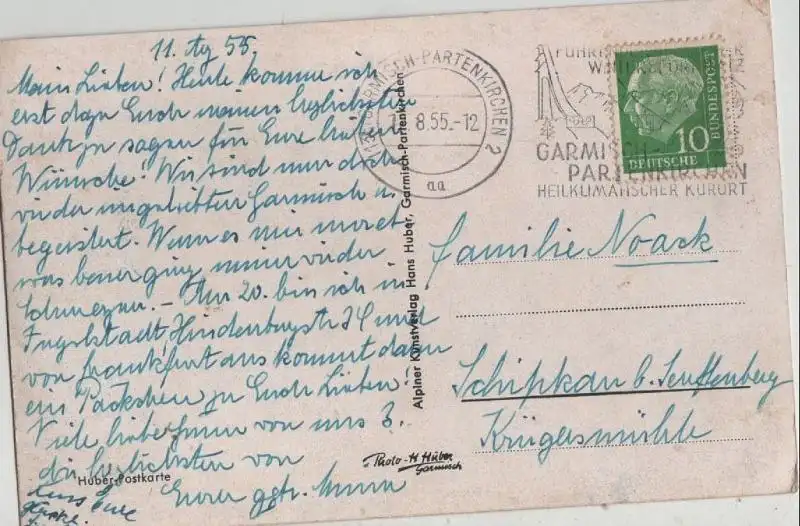 11. Aug 55.
Meine Lieben! Heute komme ich
erst dazu Euch meinen herzlichsten
Dank zu sagen für Eure lieben
Wünsche! Wir sind nun doch
wieder im geliebten Garmisch u.
begeistert. Wenn es mir
was besser ging immer wieder
– Am 20. bin ich in
Ingolstadt, Hindenburgstr. 24 und
von Frankfurt aus kommt dann
ein Päckchen zu Euch Lieben.
Viele liebe von uns 3.
die herzlichsten von
Eurer getr.
Huber-Postkarte
Alpiner Kunstverlag Hans Huber, Garmisch-Partenkirchen
Photo-H Huber
Garmisch
GARMISCH-PARTENKIRCHEN 2
8.55.-12
aa
GARMISCH-
PARTENKIRCHEN
HEILKLIMATISCHER KURORT
10
DEUTSCHE
BUNDESPOST
Familie Noack
Schipkau b. Senftenberg
Krügersmühle